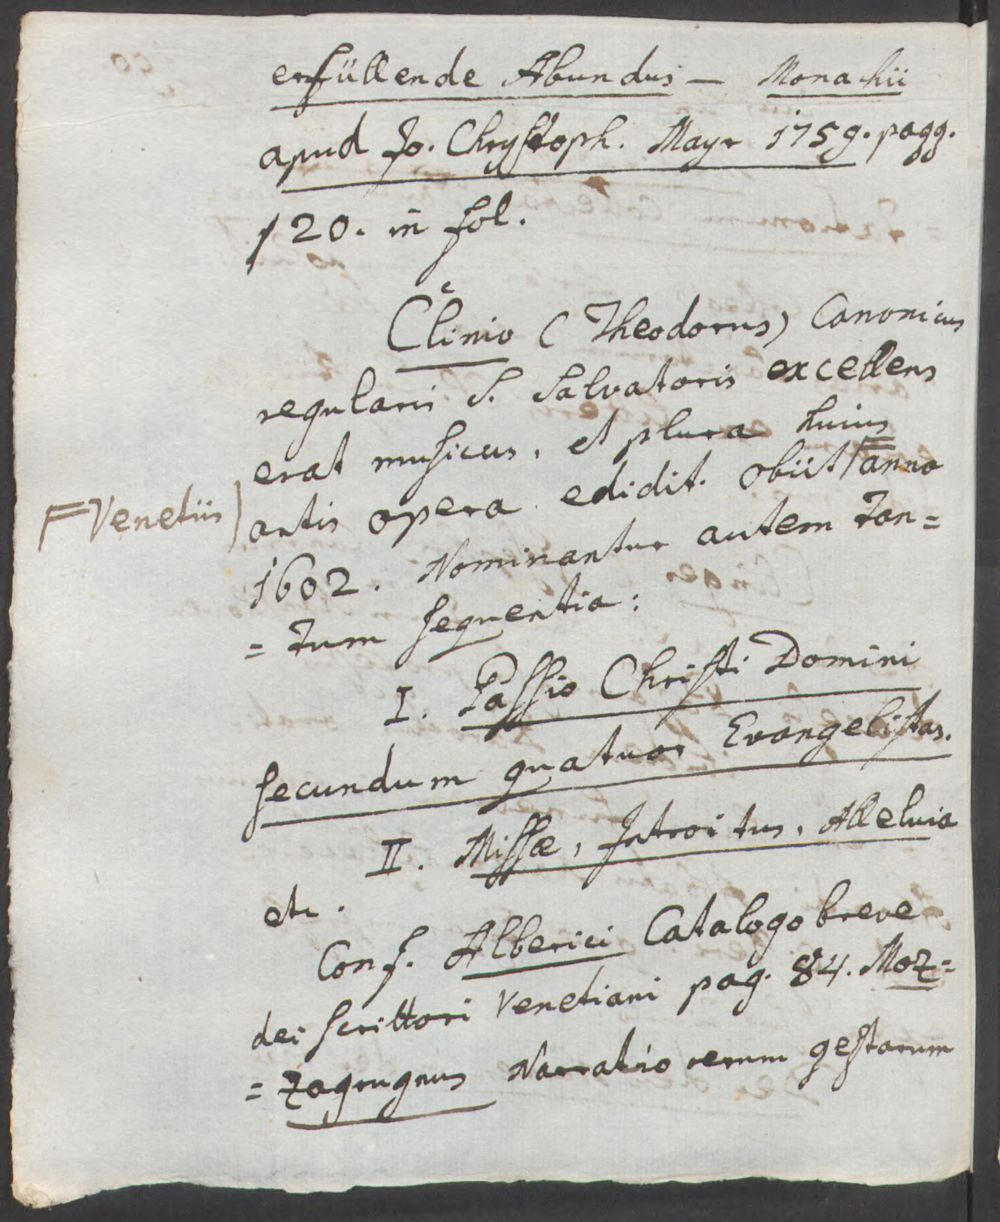 erfüllende Abundus — Monachii
apud Jo. Chrystoph. Mayr 1759. pagg.
120. in fol.
Clinio (Theodorus) Canonicus
regularis S. Salvatoris excellens
erat musicus, et plura huius
artis opera edidit. obiit F anno
F Venetiis)
1602. Nominantur autem tan=
=tum sequentia:
I. Passio Christi Domini
secundum quatuor Evangelistas.
II. Missæ, Introitus, Alleluia
etc.
Conf. Alberici Catalogo breve
dei scrittori Venetiani pag. 84. Moz=
=zagrugnus Narratio rerum gestarum